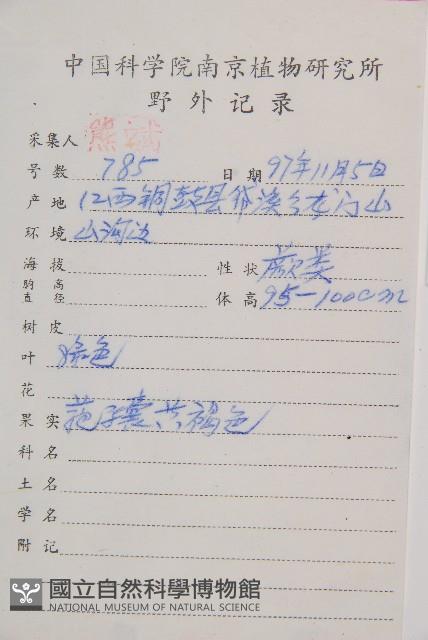 中国科学院南京植物研究所
野外记录
采集人 熊
号数 785 日期 97年11月5日
产地 江西铜鼓县 溪 龙门山
环境 山沟边
海拔 性状 蕨类
胸高直径 体高 95-100cm
树皮
叶 绿色
花
果实 孢子囊 褐色
科名
土名
学名
附记
國立自然科學博物館
NATIONAL MUSEUM OF NATURAL SCIENCE